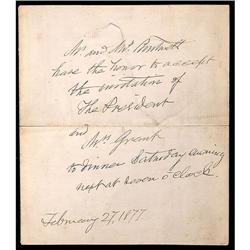 Mr. and Mrs.
have the honor to accept
the invitation of
The President
and
Mrs Grant
to dinner Saturday evening
next at seven o'clock.
February 27, 1877.